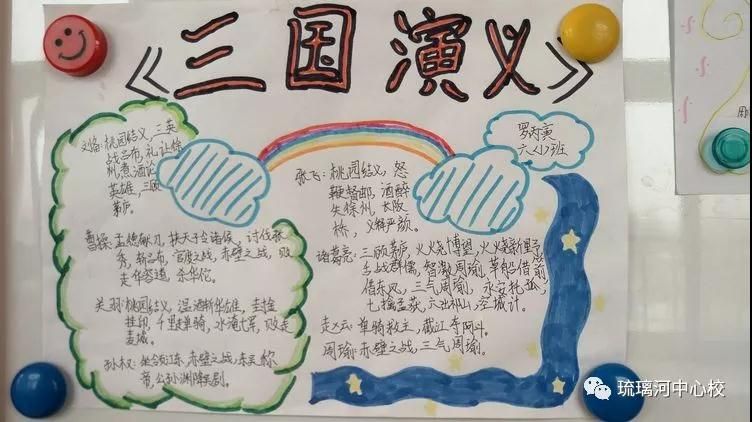 《三国演义》
罗丙寅
六(1)班
刘备:桃园结义,三英
战吕布,礼让徐
州,煮酒论
英雄,三顾
茅庐。
曹操:孟德献刀,挟天子令诸侯,讨伐张
秀,斩吕布,官渡之战,赤壁之战,败
走华容道,杀华佗。
关羽:桃园结义,温酒斩华雄,封金
挂印,千里走单骑,水淹七军,败走
麦城。
孙权:坐领江东,赤壁之战,东吴称
帝,公孙渊降吴
张飞:桃园结义,怒
鞭督邮,酒醉
失徐州,长板
桥,义释严颜。
诸葛亮:三顾茅庐,火烧博望,火烧新野,
舌战群儒,智激周瑜,草船借箭
借东风,三气周瑜,永安托孤,
七擒孟获,六出祁山,空城计。
赵云:单骑救主,截江夺阿斗。
周瑜:赤壁之战,三气周瑜。
琉璃河中心校